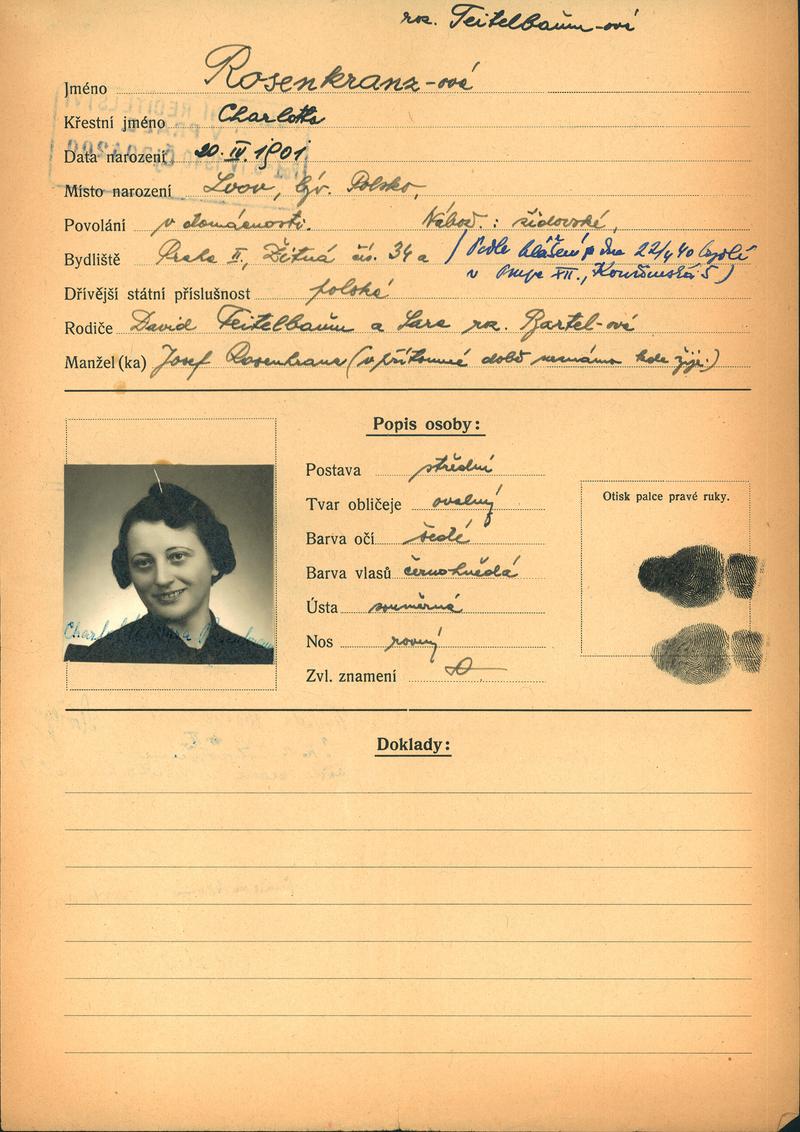 roz. Teitelbaum-ová
Jméno Rosenkranz-ová
Křestní jméno Charlotta
Data narození 20. IV. 1901
Místo narození Lvov, Polsko,
Povolání v domácnosti. Nábož.: židovské,
Bydliště Praha II., Žitná čís. 34a (Podle hlášení ze dne 22/4 40 bydlí
v Praze XII., Kouřimská 5)
Dřívější státní příslušnost polské
Rodiče David Teitelbaum a Sara roz. Bartel-ová
Manžel (ka) Josef Rosenkranz (v přítomné době neznámo kde žije.)
Popis osoby:
Postava střední
Tvar obličeje oválný
Barva očí šedé
Barva vlasů černohnědá
Ústa souměrná
Nos rovný
Zvl. znamení
Otisk palce pravé ruky.
Doklady: